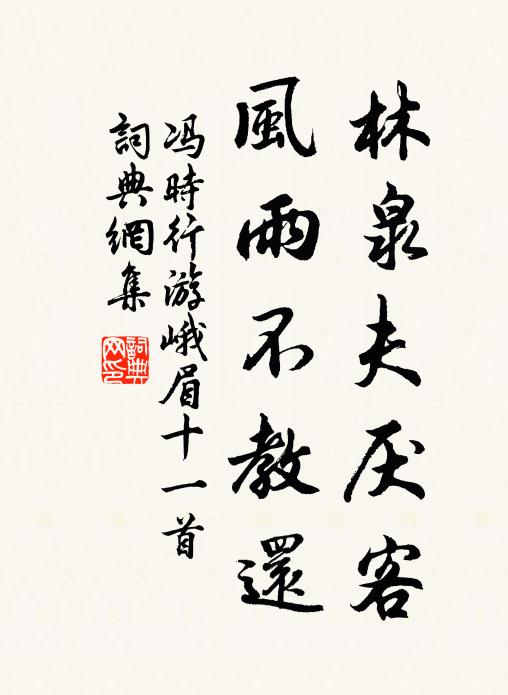 林泉夫厌客
風雨不教還
冯時行游峨眉十一首
詞典網集
詞典
网印